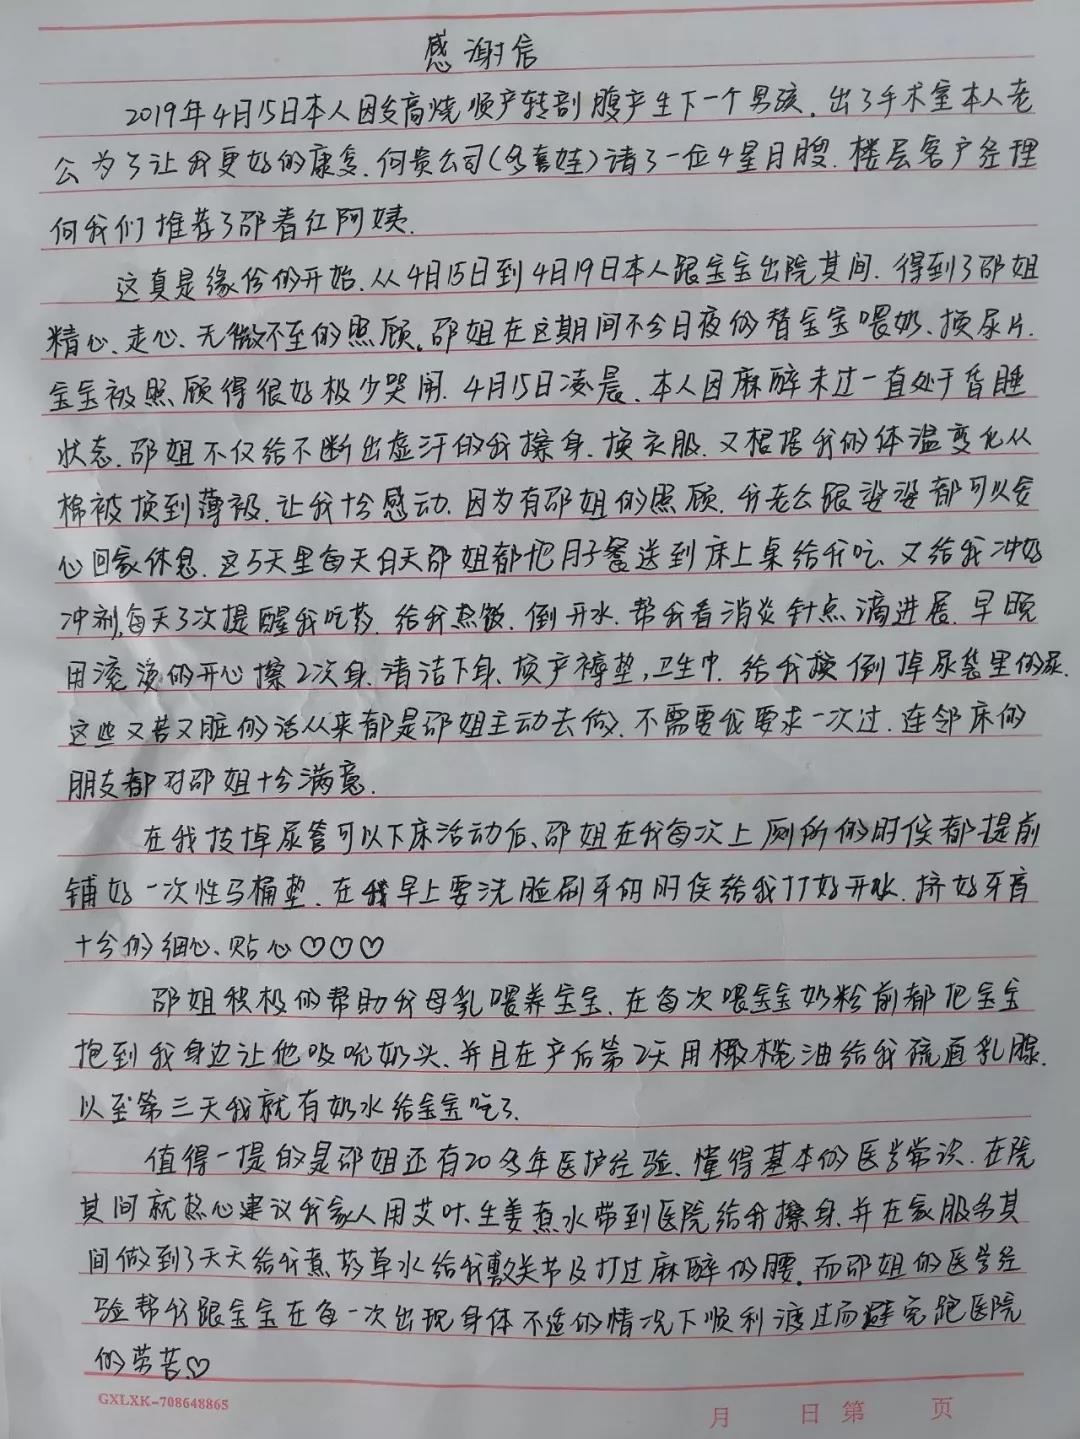 感谢信
2019年4月15日本人因发高烧顺产转剖腹产生下一个男孩.出了手术室本人老
公为了让我更好的康复.向贵公司(多喜娃)请了一位4星月嫂.楼层客户经理
向我们推荐了邵春红阿姨.
这真是缘份的开始.从4月15日到4月19日本人跟宝宝出院其间.得到了邵姐
精心、走心、无微不至的照顾。邵姐在这期间不分日夜的替宝宝喂奶、换尿片.
宝宝被照顾得很好极少哭闹.4月15日凌晨、本人因麻醉未过一直处于昏睡
状态.邵姐不仅给不断出虚汗的我擦身.换衣服.又根据我的体温变化从
棉被换到薄被.让我十分感动.因为有邵姐的照顾.我老公跟婆婆都可以安
心回家休息.这5天里每天白天邵姐都把月子餐送到床上桌给我吃、又给我冲好
冲剂,每天3次提醒我吃药.给我热饭.倒开水.帮我看消炎针点滴进展.早晚
用滚烫的开心擦2次身.清洁下身.换产褥垫,卫生巾.给我换倒掉尿袋里的尿.
这些又苦又脏的活从来都是邵姐主动去做.不需要我要求一次过.连邻床的
朋友都对邵姐十分满意.
在我拔掉尿管可以下床活动后、邵姐在我每次上厕所的时候都提前
铺好一次性马桶垫.在我早上要洗脸刷牙的时候给我打好开水.挤好牙膏
十分的细心、贴心♡♡♡
邵姐积极的帮助我母乳喂养宝宝.在每次喂宝宝奶粉前都把宝宝
抱到我身边让他吸吮奶头.并且在产后第2天用橄榄油给我疏通乳腺.
以至第三天我就有奶水给宝宝吃了.
值得一提的是邵姐还有20多年医护经验.懂得基本的医学常识.在院
其间就热心建议我家人用艾叶、生姜煮水带到医院给我擦身.并在家服务其
间做到了天天给我煮药草水给我敷关节及打过麻醉的腰。而邵姐的医学经
验帮我跟宝宝在每一次出现身体不适的情况下顺利渡过而避免跑医院
的劳苦.♡
GXLXK-708648865
月 日 第 页